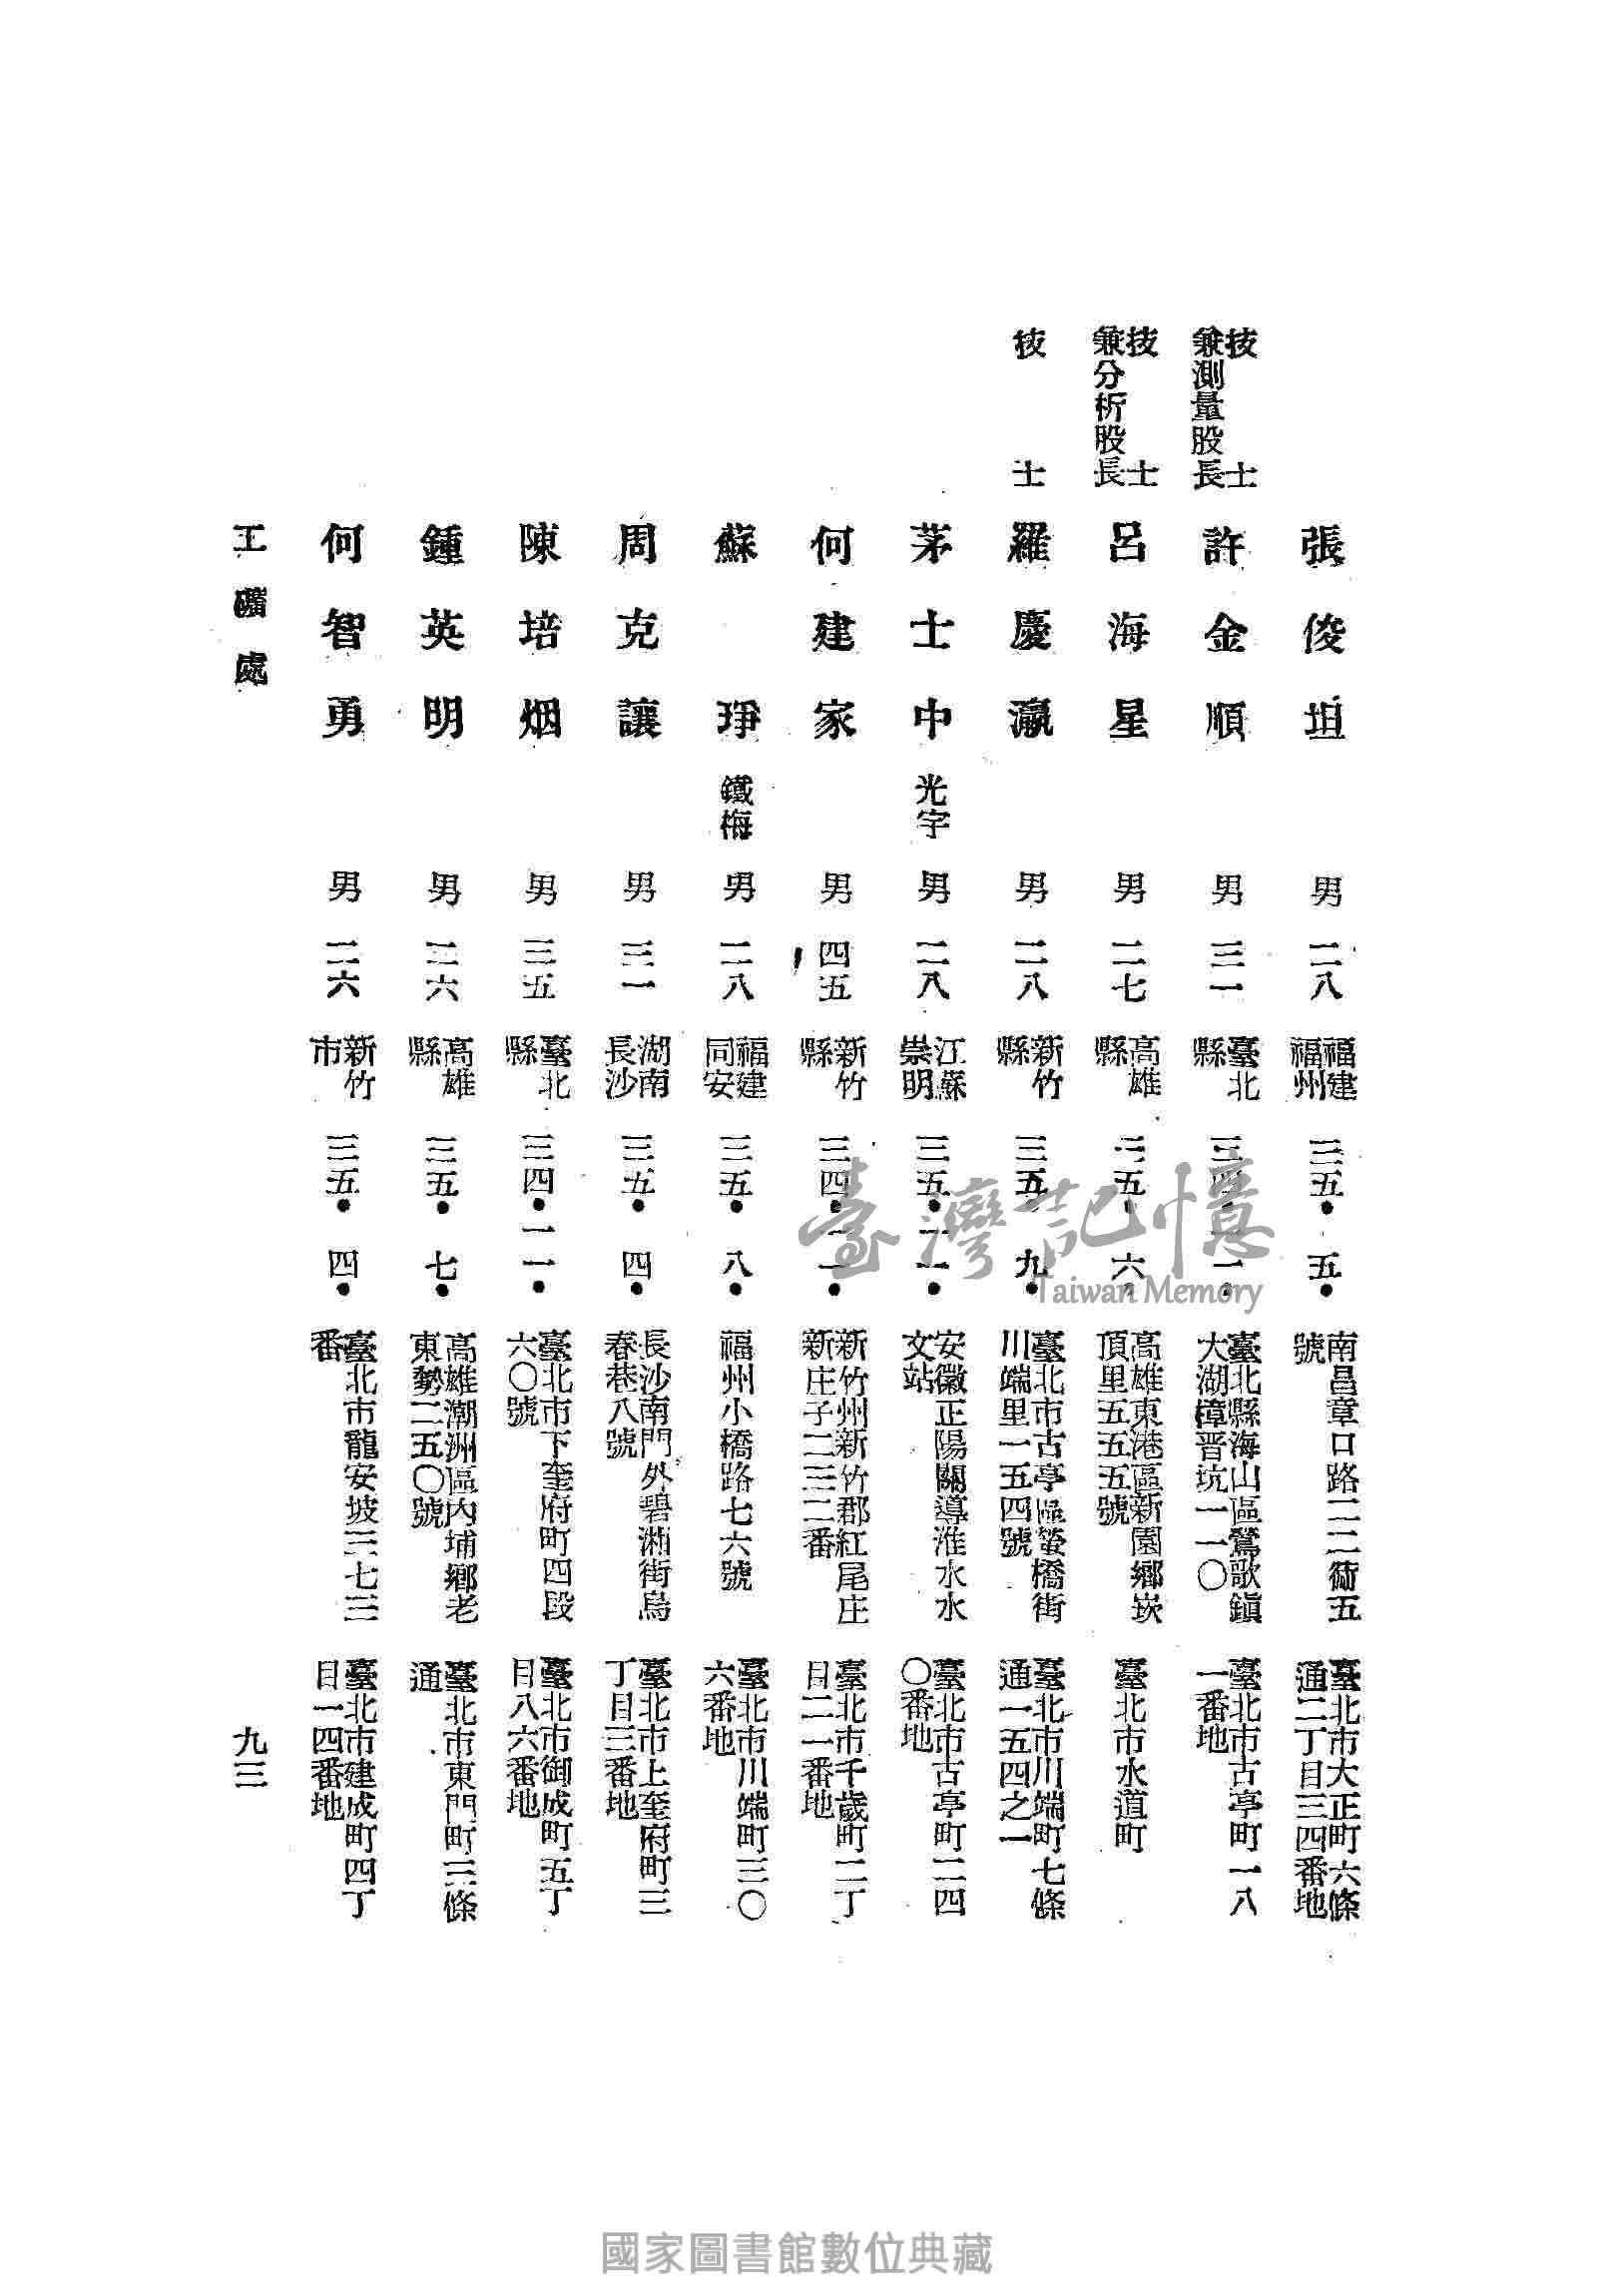 張俊坦 男 二八 福建福州 三五•五• 南昌章口路二二衛五號 臺北市大正町六條通二丁目三四番地
技士兼測量股長 許金順 男 三一 臺北縣 三四•一一• 臺北縣海山區鶯歌鎮大湖樟晋坑一一〇 臺北市古亭町一八一番地
技士兼分析股長 呂海星 男 二七 高雄縣 三五•六• 高雄東港區新園鄉崁頂里五五五號 臺北市水道町
技士 羅慶瀛 男 二八 新竹縣 三五•九• 臺北市古亭區螢橋街川端里一五四號 臺北市川端町七條通一五四之一
茅士中 光宇 男 二八 江蘇崇明 三五•一一• 安徽正陽關導淮水水文站 臺北市古亭町二四〇番地
何建家 男 四五 新竹縣 三四•一一• 新竹州新竹郡紅尾庄新庄子二三二番 臺北市千歲町二丁目二一番地
蘇琤 鐵梅 男 二八 福建同安 三五•八• 福州小橋路七六號 臺北市川端町三〇六番地
周克讓 男 三一 湖南長沙 三五•四• 長沙南門外碧湘街烏春巷八號 臺北市上奎府町三丁目三番地
陳培烟 男 三五 臺北縣 三四•一一• 臺北市下奎府町四段六〇號 臺北市御成町五丁目八六番地
鍾英明 男 二六 高雄縣 三五•七• 高雄潮洲區內埔鄉老東勢二五〇號 臺北市東門町三條通
何智勇 男 二六 新竹市 三五•四• 臺北市龍安坡三七三番 臺北市建成町四丁目一四番地
工礦處 九三
臺灣記憶
Taiwan Memory
國家圖書館數位典藏